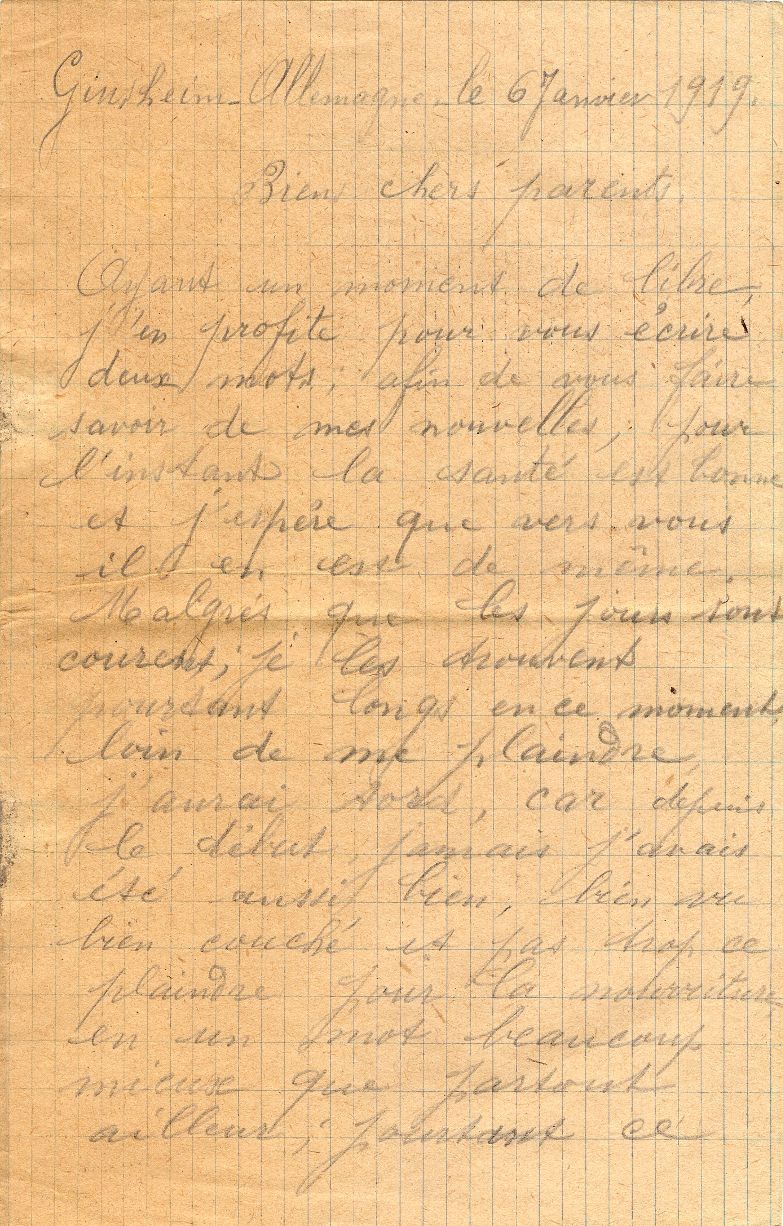 Ginsheim - Allemagne, le 6 Janvier 1919.
Biens chers parents.
Ayant un moment de libre,
j'en profite pour vous écrire
deux mots; afin de vous faire
savoir de mes nouvelles, pour
l'instant la santé est bonne
et j'espére que vers vous
il en est de même.
Malgrés que les jours sont
courent; je les trouvent
pourtant longs en ce moment,
loin de me plaindre,
j'aurai tord, car depuis
le début, jamais j'avais
été aussi bien, bien vu
bien couché et pas trop ce
plaindre pour la nourriture,
en un mot beaucoup
mieux que partout
ailleur; pourtant ce